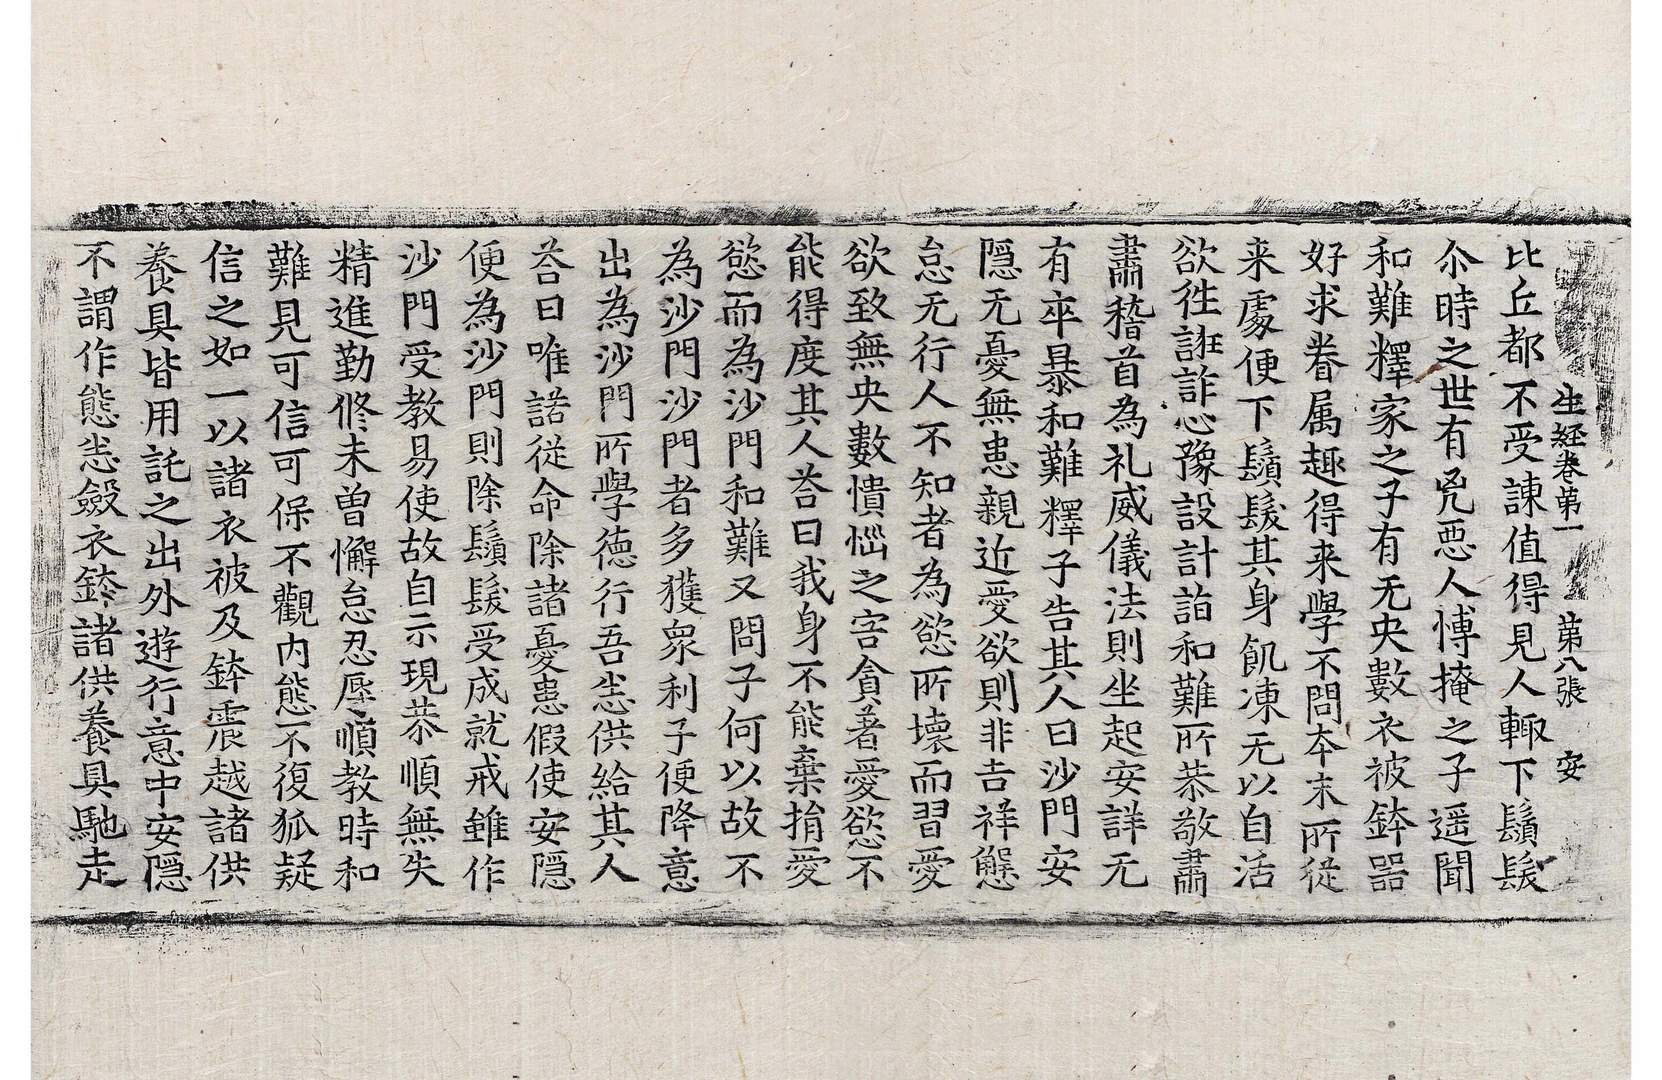 生経卷第一 第八張 安
比丘都不受諫值得見人輙下鬚髮
尒時之世有兇惡人博掩之子遥聞
和難釋家之子有无央數衣被鉢器
好求眷属趣得来學不問本末所從
来處便下鬚髮其身飢凍无以自活
欲徃誑詐心豫設計詣和難所恭敬肅
肅稽首為礼威儀法則坐起安詳无
有卒暴和難釋子告其人曰沙門安
隱无憂無患親近愛欲則非吉祥懈
怠无行人不知者為慾所壞而習愛
欲致無央數憒惱之害貪著愛慾不
能得度其人荅曰我身不能棄捐愛
慾而為沙門和難又問子何以故不
為沙門沙門者多獲衆利子便降意
出為沙門所學德行吾悉供給其人
荅曰唯諾從命除諸憂患假使安隱
便為沙門則除鬚髮受成就戒雖作
沙門受教易使故自示現恭順無失
精進勤修未曽懈怠忍辱順教時和
難見可信可保不觀内態不復狐疑
信之如一以諸衣被及鉢震越諸供
養具皆用託之出外遊行意中安隱
不謂作態悉斂衣鉢諸供養具馳走